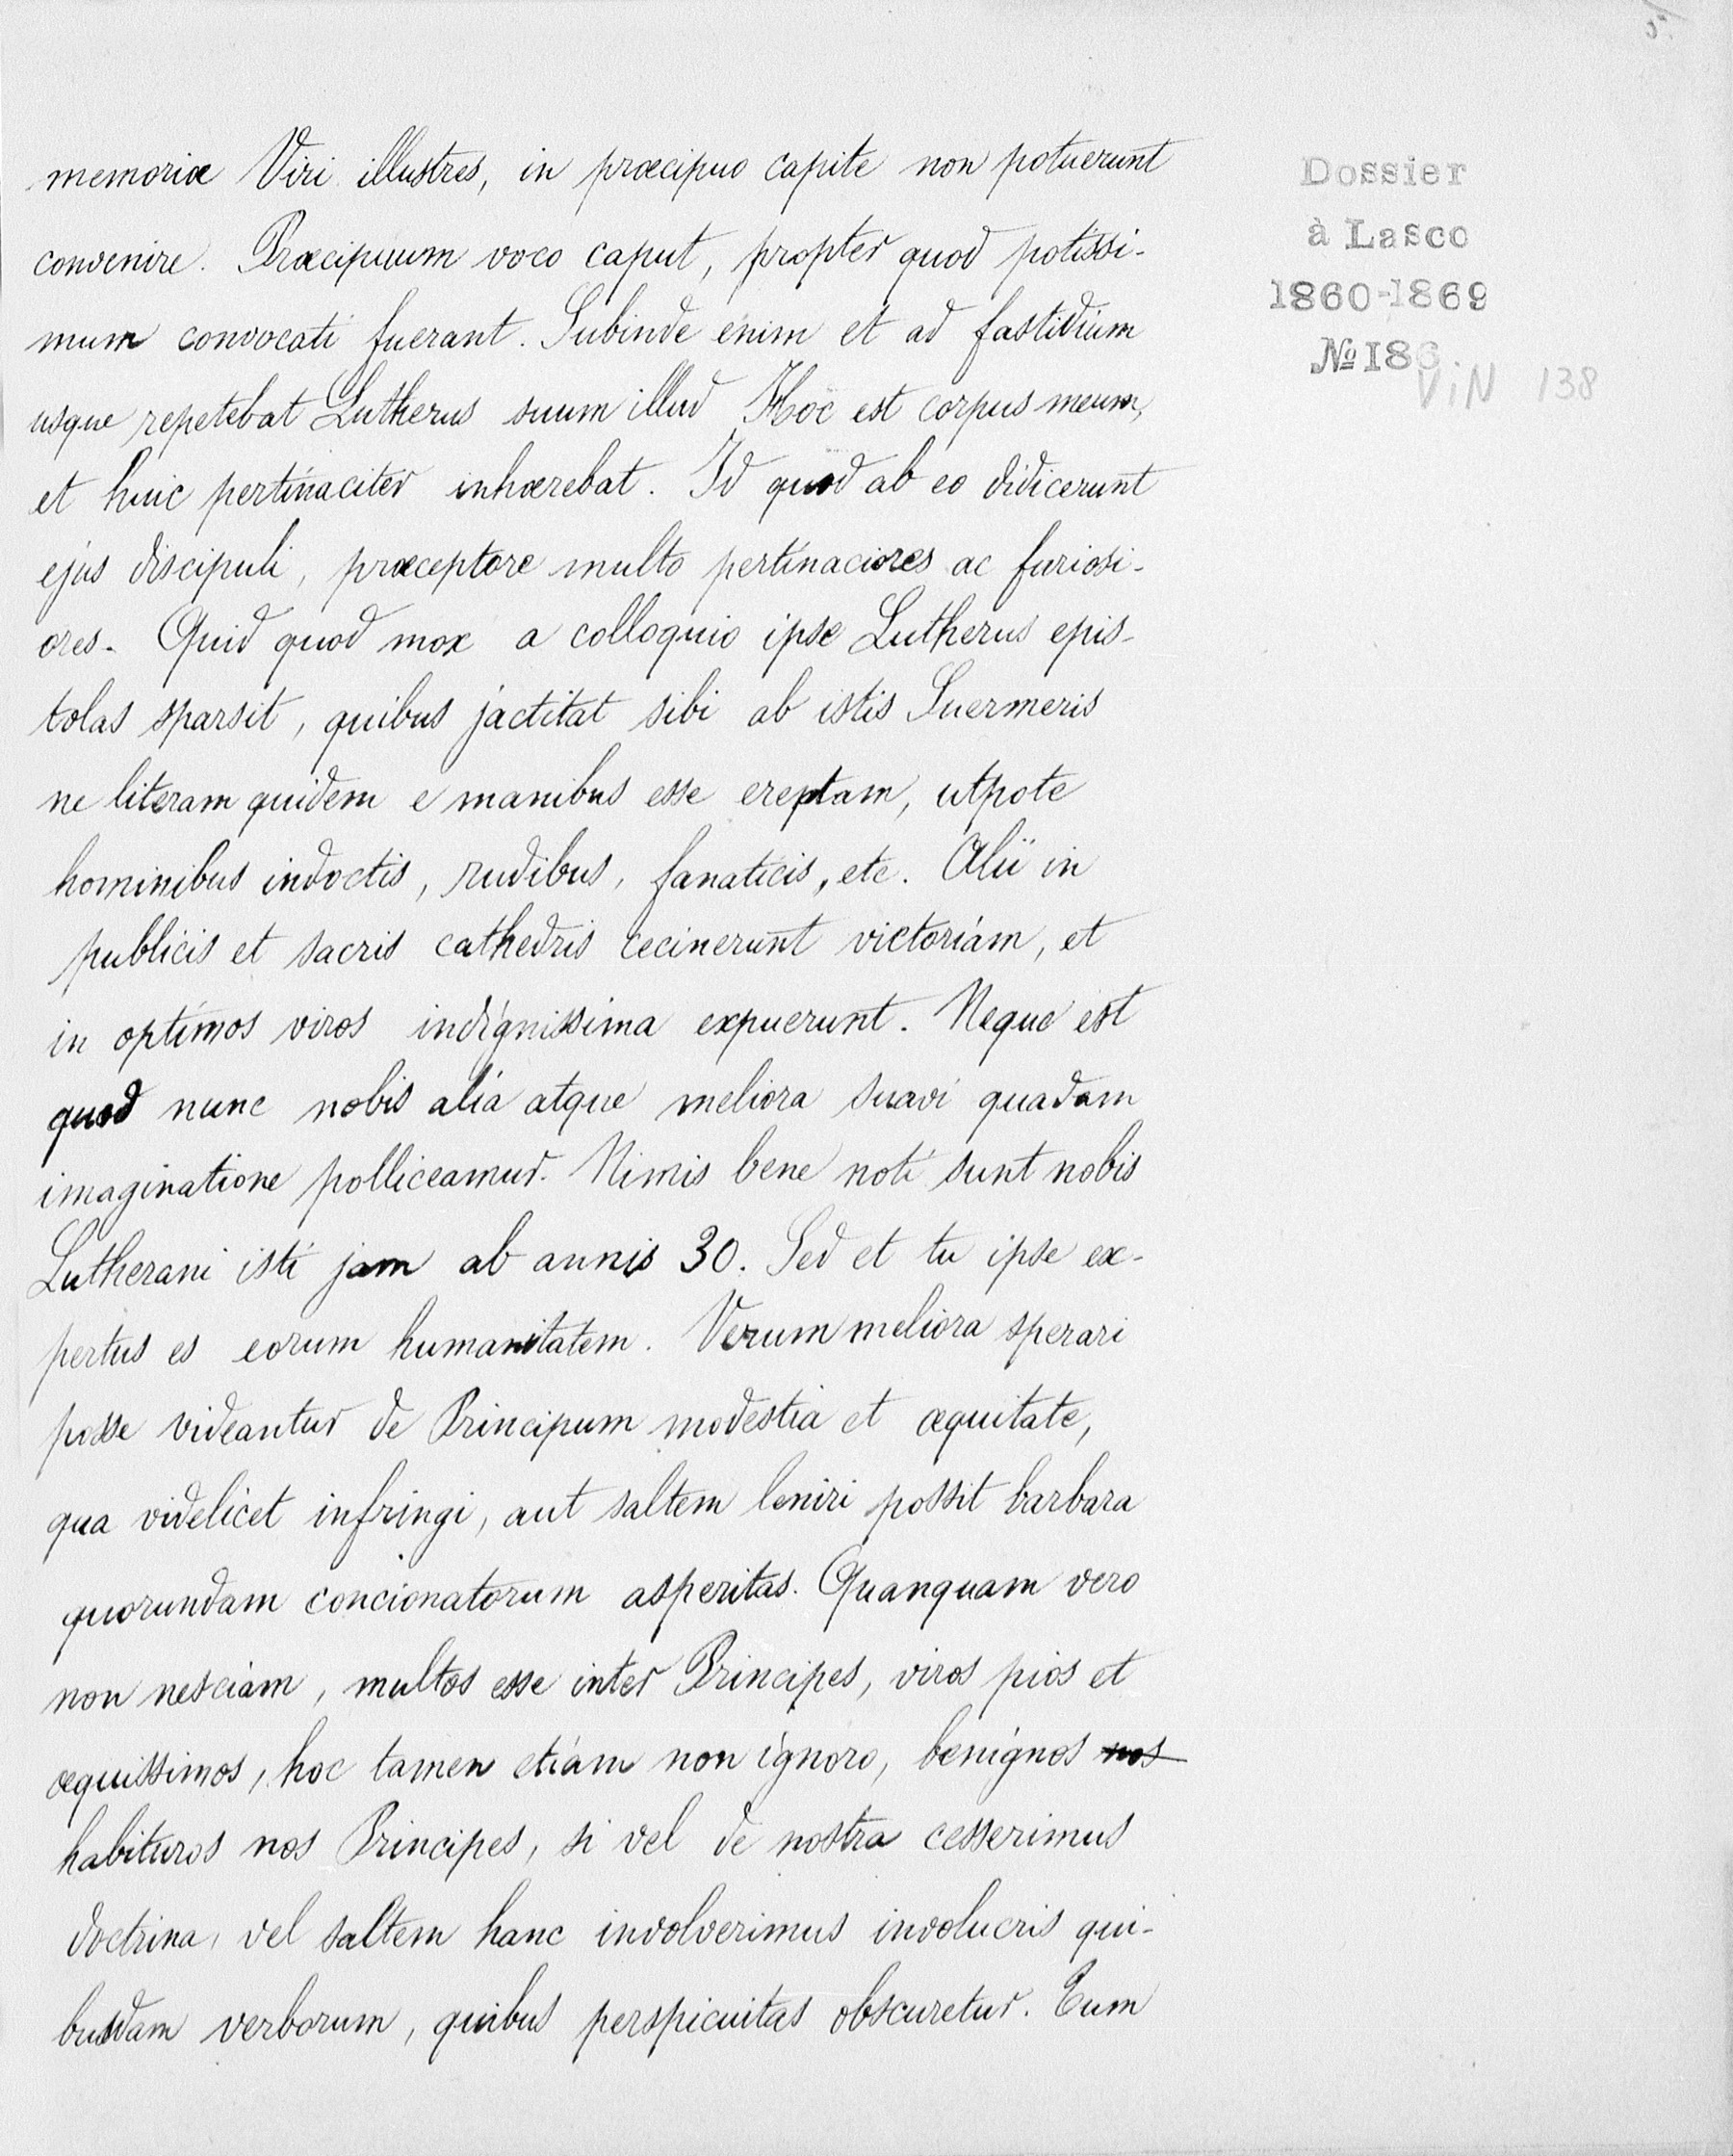 memoriæ Viri illustres, in præcipuo capite non potuerunt
convenire. Præcipuum voco caput, propter quod potissi-
mum convocati fuerant. Subinde enim et ad fastidium
usque repetebat Lutherus suum illud Hoc est corpus meum,
et huic pertinaciter inhærebat. Id quod ab eo didicerunt
ejus discipuli, præceptore multo pertinaciores ac furiosi-
ores. Quid quod mox a colloquio ipse Lutherus epis-
tolas sparsit, quibus jactitat sibi ab istis Suermeris
ne literam quidem e manibus esse ereptam, utpote
hominibus indoctis, rudibus, fanaticis, etc. Alii in
publicis et sacris cathedris cecinerunt victoriam, et
in optimos viros indignissima expuerunt. Neque est
quod nunc nobis alia atque meliora suavi quadam
imaginatione polliceamur. Nimis bene noti sunt nobis
Lutherani isti jam ab annis 30. Sed et tu ipse ex-
pertus es eorum humanitatem. Verum meliora sperari
posse videantur de Principum modestia et æquitate,
qua videlicet infringi, aut saltem leniri possit barbara
quorundam concionatorum asperitas. Quanquam vero
non nesciam, multos esse inter Principes, viros pios et
æquissimos, hoc tamen etiam non ignoro, benignos nos
habituros nos Principes, si vel de nostra cesserimus
doctrina, vel saltem hanc involverimus involucris qui-
busdam verborum, quibus perspicuitas obscuretur. Cum
Dossier
à Lasco
1860-1869
№ 186
ViN 138